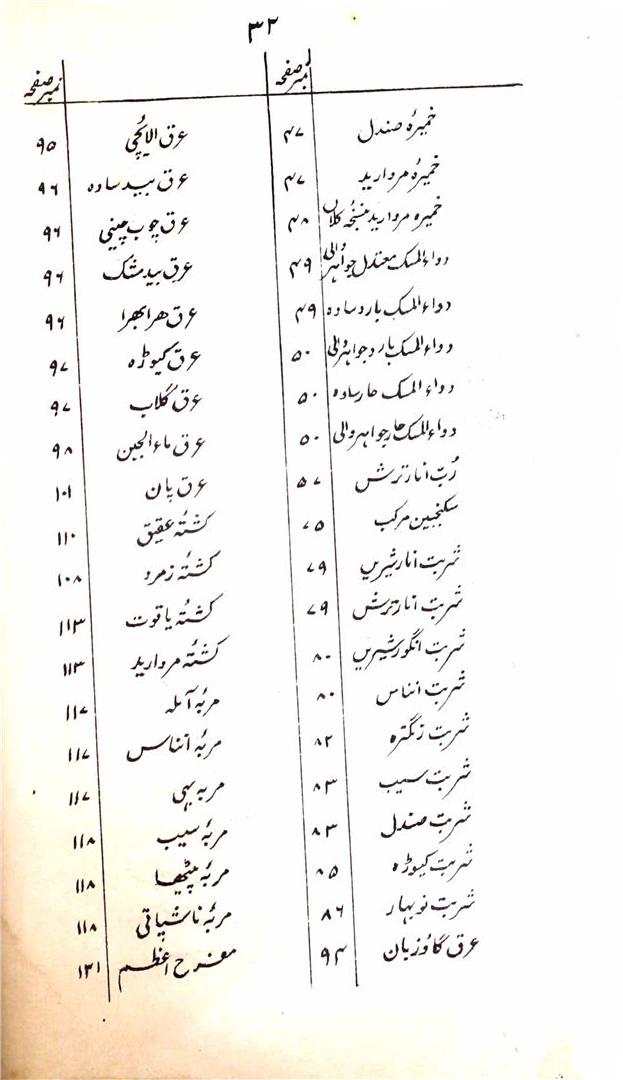 ۳۲
نمبر صفحہ
خمیرہ صندل ۴۷
خمیرہ مروارید ۴۷
خمیرہ مروارید بنسخہ کلاں ۴۸
دواء المسک معتدل جواہر والی ۴۹
دواء المسک بارد سادہ ۴۹
دواء المسک بارد جواہر والی ۵۰
دواء المسک حار سادہ ۵۰
دواء المسک حار جواہر والی ۵۰
رُبّ انار ترش ۵۷
سکنجبین مرکب ۷۵
شربت انار شیریں ۷۹
شربت انار ترش ۷۹
شربت انگور شیریں ۸۰
شربت انناس ۸۰
شربت رنگترہ ۸۲
شربت سیب ۸۳
شربت صندل ۸۳
شربت کیوڑہ ۸۵
شربت نوبہار ۸۶
عرق گاؤزبان ۹۴
نمبر صفحہ
عرق الائچی ۹۵
عرق بید سادہ ۹۶
عرق چوب چینی ۹۶
عرق بید مشک ۹۶
عرق ہرا بھرا ۹۶
عرق کیوڑہ ۹۷
عرق گلاب ۹۷
عرق ماء الجبن ۹۸
عرق پان ۱۰۱
کشتۂ عقیق ۱۱۰
کشتۂ زمرد ۱۰۸
کشتۂ یاقوت ۱۱۳
کشتۂ مروارید ۱۱۳
مربۂ آملہ ۱۱۷
مربۂ انناس ۱۱۷
مربہ بہی ۱۱۷
مربۂ سیب ۱۱۸
مربۂ پیٹھا ۱۱۸
مربۂ ناشپاتی ۱۱۸
مفرح اعظم ۱۲۱